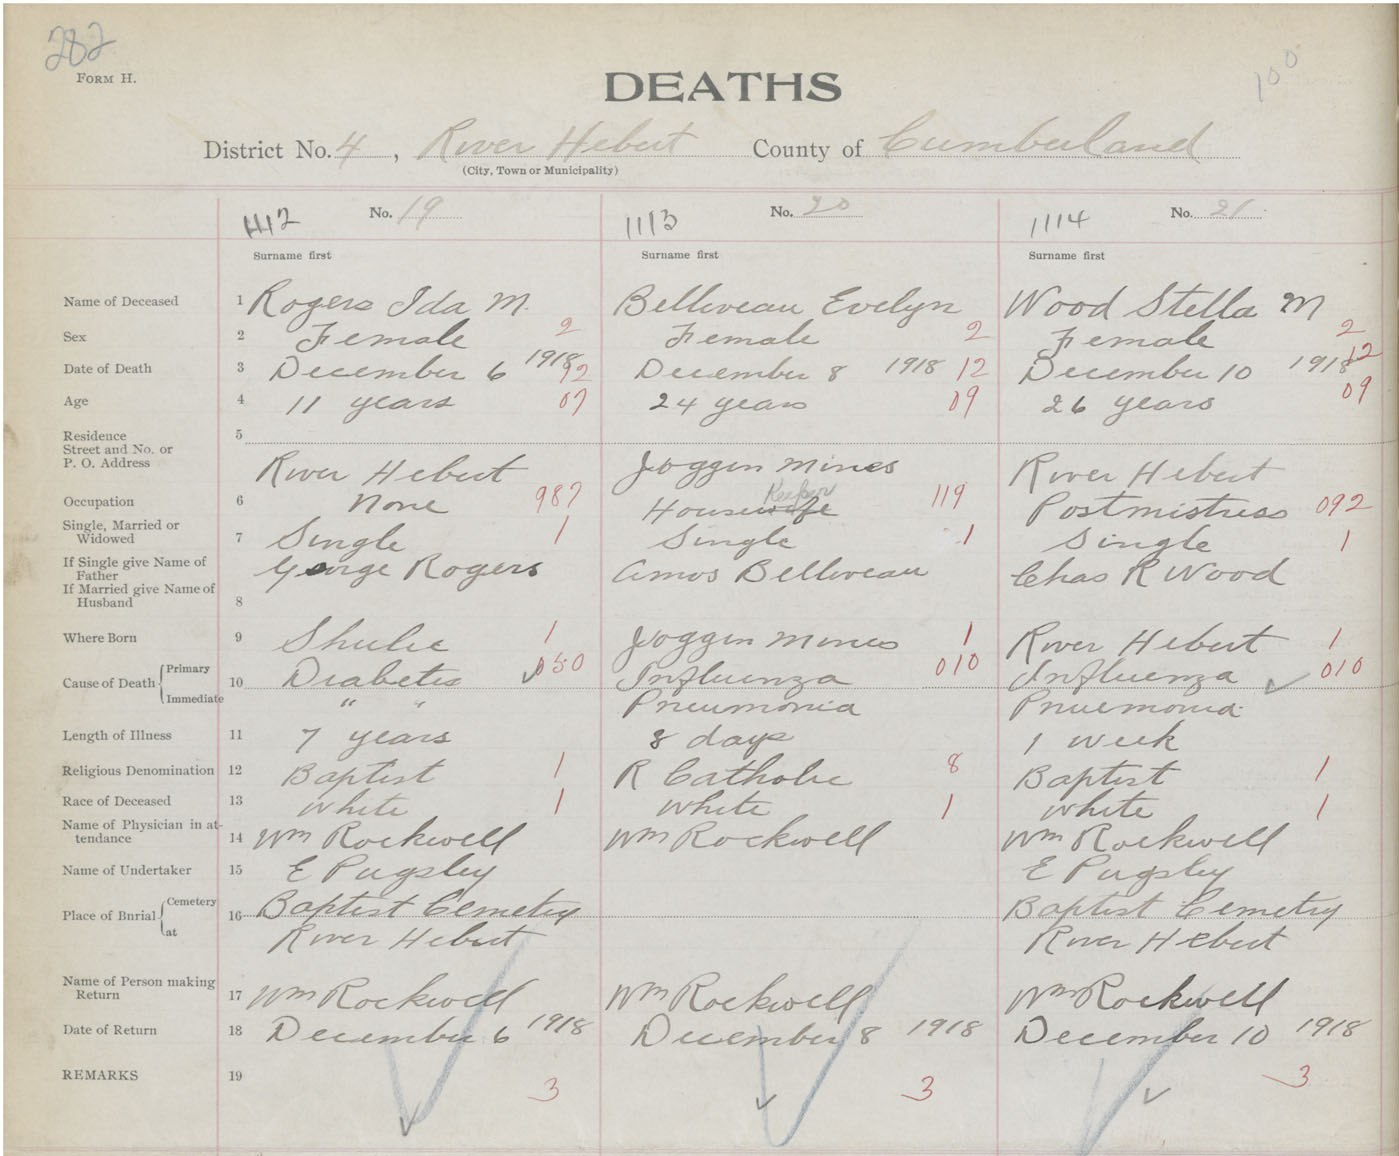 282
FORM H.
100
DEATHS
District No. 4, River Hebert County of Cumberland
(City, Town or Municipality)
1112 No. 19 1113 No. 20 1114 No. 21
Surname first Surname first Surname first
Name of Deceased 1 Rogers Ida M. Belliveau Evelyn Wood Stella M
Sex 2 Female 2 Female 2 Female 2
Date of Death 3 December 6 1918 12 December 8 1918 12 December 10 1918 12
Age 4 11 years 07 24 years 09 26 years 09
Residence 5
Street and No. or
P. O. Address River Hebert Joggin Mines River Hebert
Keeper
Occupation 6 None 987 Housewife 119 Postmistress 092
Single, Married or
Widowed 7 Single 1 Single 1 Single 1
If Single give Name of
Father George Rogers Amos Belliveau Chas R Wood
If Married give Name of
Husband 8
Where Born 9 Shulie 1 Joggin Mines 1 River Hebert 1
Cause of Death { Primary 10 Diabetes 050 Influenza 010 Influenza 010
Immediate " " Pneumonia Pnuemonia
Length of Illness 11 7 years 8 days 1 week
Religious Denomination 12 Baptist 1 R Catholic 8 Baptist 1
Race of Deceased 13 White 1 White 1 White 1
Name of Physician in at-
tendance 14 Wm Rockwell Wm Rockwell Wm Rockwell
Name of Undertaker 15 E Pugsley E Pugsley
Place of Burial { Cemetery 16 Baptist Cemetry Baptist Cemetry
at River Hebert River Hebert
Name of Person making
Return 17 Wm Rockwell Wm Rockwell Wm Rockwell
Date of Return 18 December 6 1918 December 8 1918 December 10 1918
REMARKS 19 3 3 3